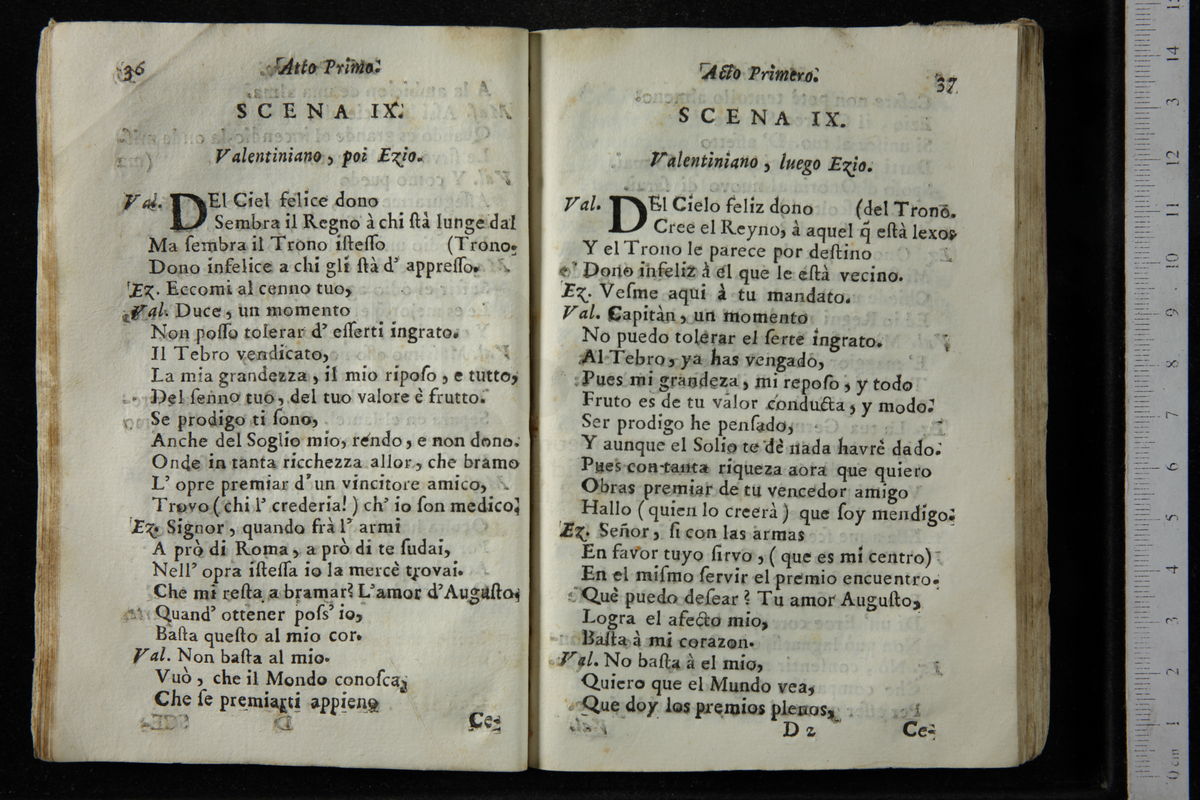 36
Atto Primo.
SCENA IX.
Valentiniano, poi Ezio.
Val. DEl Ciel felice dono
Sembra il Regno à chi ſtà lunge dal
Ma ſembra il Trono iſteſſo (Trono.
Dono infelice a chi gli ſtà d' appreſſo.
Ez. Eccomi al cenno tuo,
Val. Duce, un momento
Non poſſo tolerar d' eſſerti ingrato.
Il Tebro vendicato,
La mia grandezza, il mio ripoſo, e tutto,
Del ſenno tuo, del tuo valore è frutto.
Se prodigo ti ſono,
Anche del Soglio mio, rendo, e non dono.
Onde in tanta ricchezza allor, che bramo
L' opre premiar d' un vincitore amico,
Trovo (chi l' crederia!) ch' io ſon medico.
Ez. Signor, quando frà l' armi
A prò di Roma, a prò di te ſudai,
Nell' opra iſteſſa io la mercè trovai.
Che mi reſta a bramar? L'amor d'Auguſto,
Quand' ottener poſs' io,
Baſta queſto al mio cor.
Val. Non baſta al mio.
Vuò, che il Mondo conoſca,
Che ſe premiarti appieno
Ce-
37
Acto Primero.
SCENA IX.
Valentiniano, luego Ezio.
Val. DEl Cielo feliz dono (del Trono.
Cree el Reyno, à aquel q̃ eſtà lexos
Y el Trono le parece por deſtino
Dono infeliz à él que le eſtà vecino.
Ez. Veſme aqui à tu mandato.
Val. Capitàn, un momento
No puedo tolerar el ſerte ingrato.
Al Tebro, ya has vengado,
Pues mi grandeza, mi repoſo, y todo
Fruto es de tu valor conducta, y modo.
Ser prodigo he penſado,
Y aunque el Solio te dè nada havrè dado.
Pues con tanta riqueza aora que quiero
Obras premiar de tu vencedor amigo
Hallo (quien lo creerà) que ſoy mendigo.
Ez. Señor, ſi con las armas
En favor tuyo ſirvo, (que es mi centro)
En el miſmo ſervir el premio encuentro.
Què puedo deſear? Tu amor Auguſto,
Logra el afecto mio,
Baſta à mi corazon.
Val. No baſta à el mio,
Quiero que el Mundo vea,
Que doy los premios plenos,
D 2 Ce-
0 cm 1 2 3 4 5 6 7 8 9 10 11 12 13 14